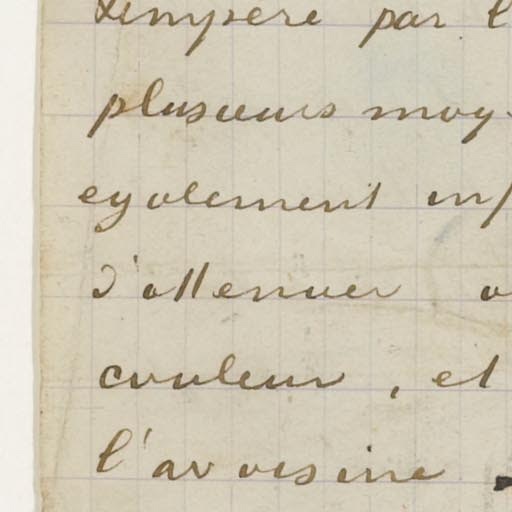 tempéré par l
plusieurs moy
egalement inf
d'attenuer
couleur, et
l'avoisine